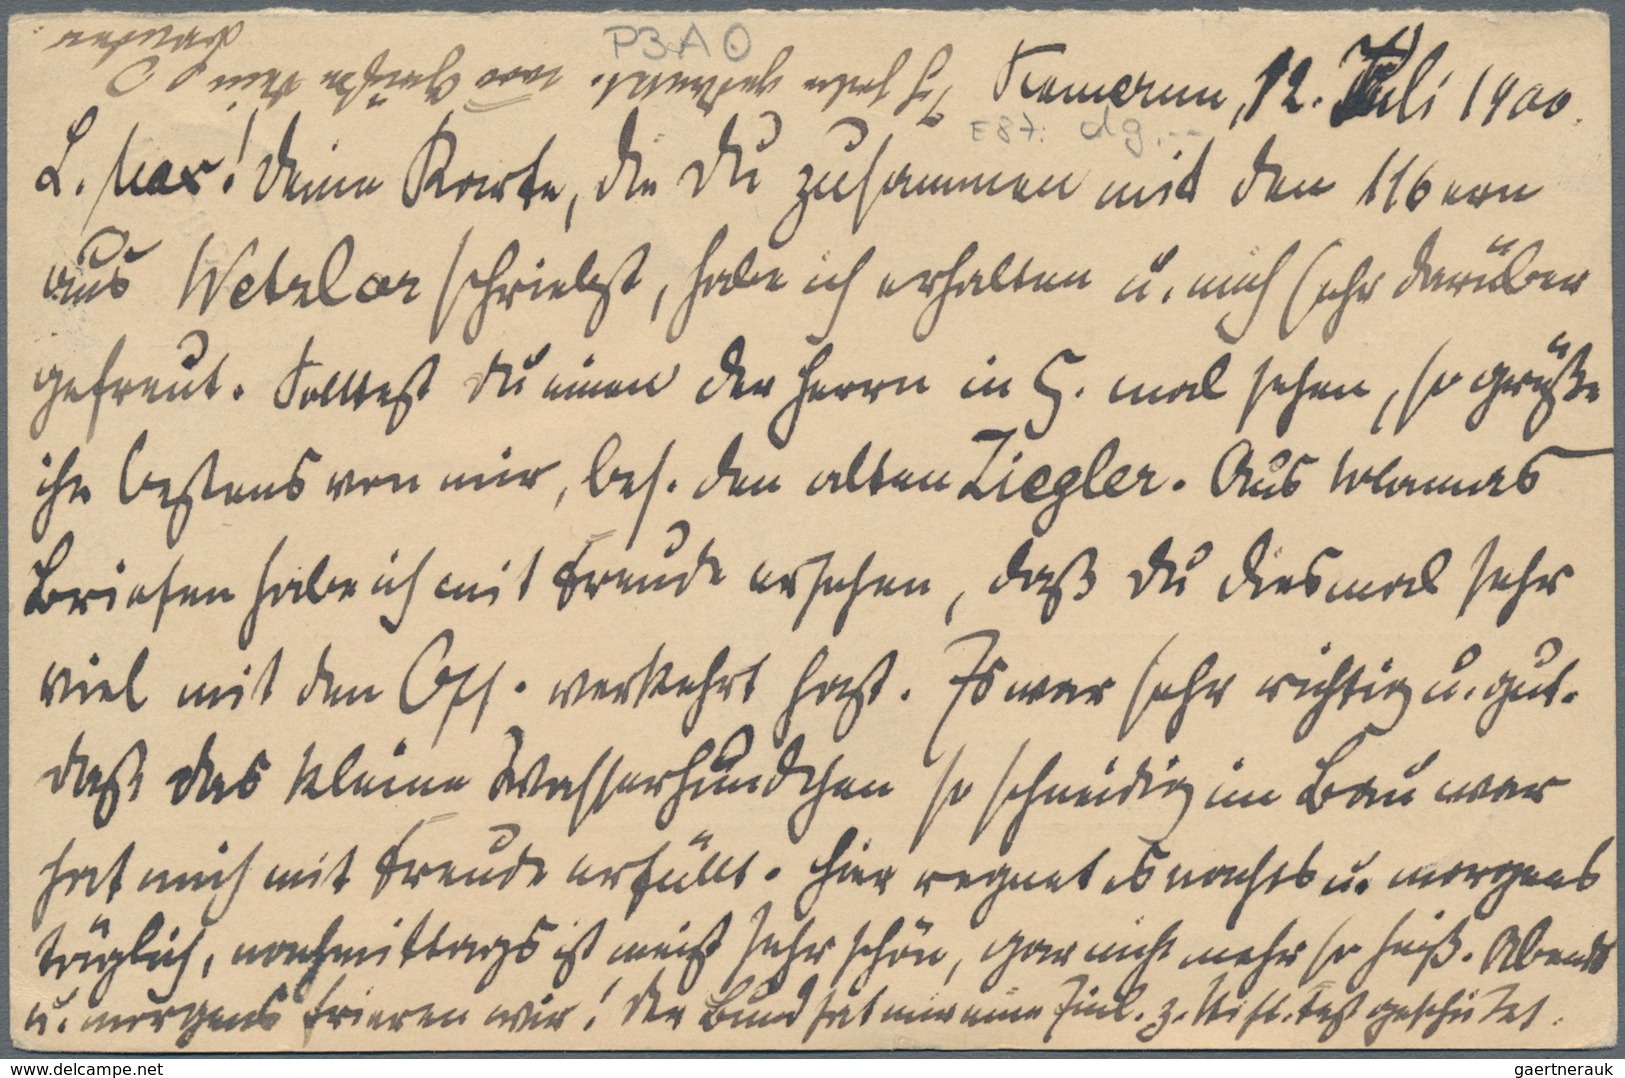 P3A0
Kamerun, 12. Juli 1900.
E87. dg.--
L. Max! Deine Karte, die Du zusammen mit den 116ern
aus Wetzlar schriebst, habe ich erhalten u. mich sehr darüber
gefreut. Solltest Du einen der Herrn in G. mal sehen, so grüße
ihn bestens von mir, bes. den alten Ziegler. Aus Mamas
Briefen habe ich mit Freude ersehen, daß Du diesmal sehr
viel mit den Off. verkehrt hast. Es war sehr richtig u. gut.
daß das kleine Wasserhündchen so schneidig im Bau war
hat mich mit Freude erfüllt. Hier regnet es nachts u. morgens
täglich, nachmittags ist meist sehr schön, gar nicht mehr so heiß. Abends
u. morgens frieren wir! Der Bund hat mir eine Einl. z. Stift.fest geschickt.
Ich habe
delcampe.net
gaertnerauk